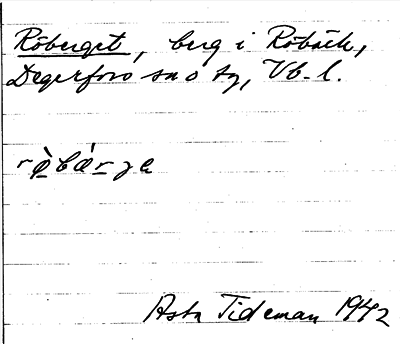 Röberget, berg i Röbäck,
Degerfors sn o tg, Vb. l.
Asta Tideman 1942